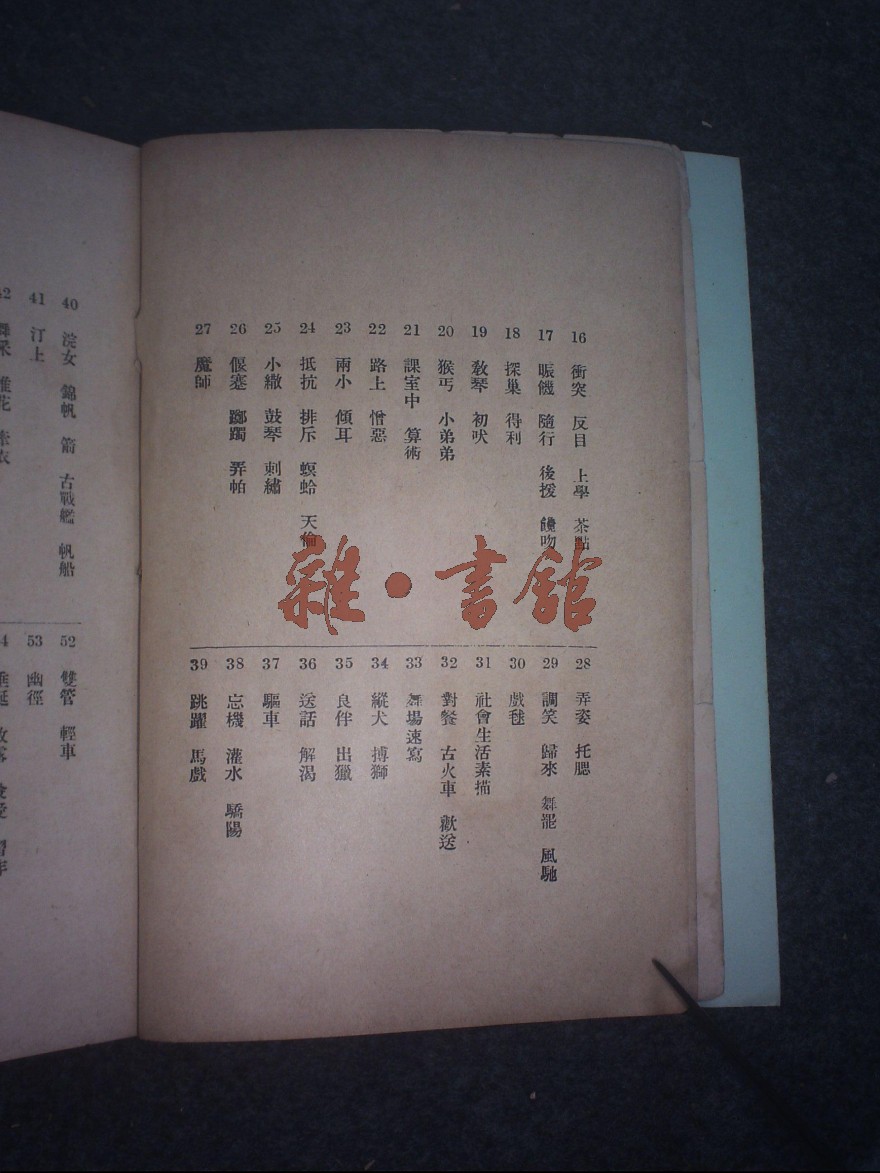 16 衝突 反目 上學 茶點
17 賑饑 隨行 後援 饞吻
18 探巢 得利
19 教琴 初吠
20 猴丐 小弟弟
21 課室中 算術
22 路上 憎惡
23 兩小 傾耳
24 抵抗 排斥 螟蛉 天倫
25 小繖 鼓琴 刺繡
26 偃蹇 躑躅 弄帕
27 魔師
28 弄姿 托腮
29 調笑 歸來 舞罷 風馳
30 戲毬
31 社會生活素描
32 對餐 古火車 歡送
33 舞場速寫
34 縱犬 搏獅
35 良伴 出獵
36 送話 解渴
37 驅車
38 忘機 灌水 驕陽
39 跳躍 馬戲
40 浣女 錦帆 箭 古戰艦 帆船
41 汀上
52 雙管 輕車
53 幽徑
雜·書館